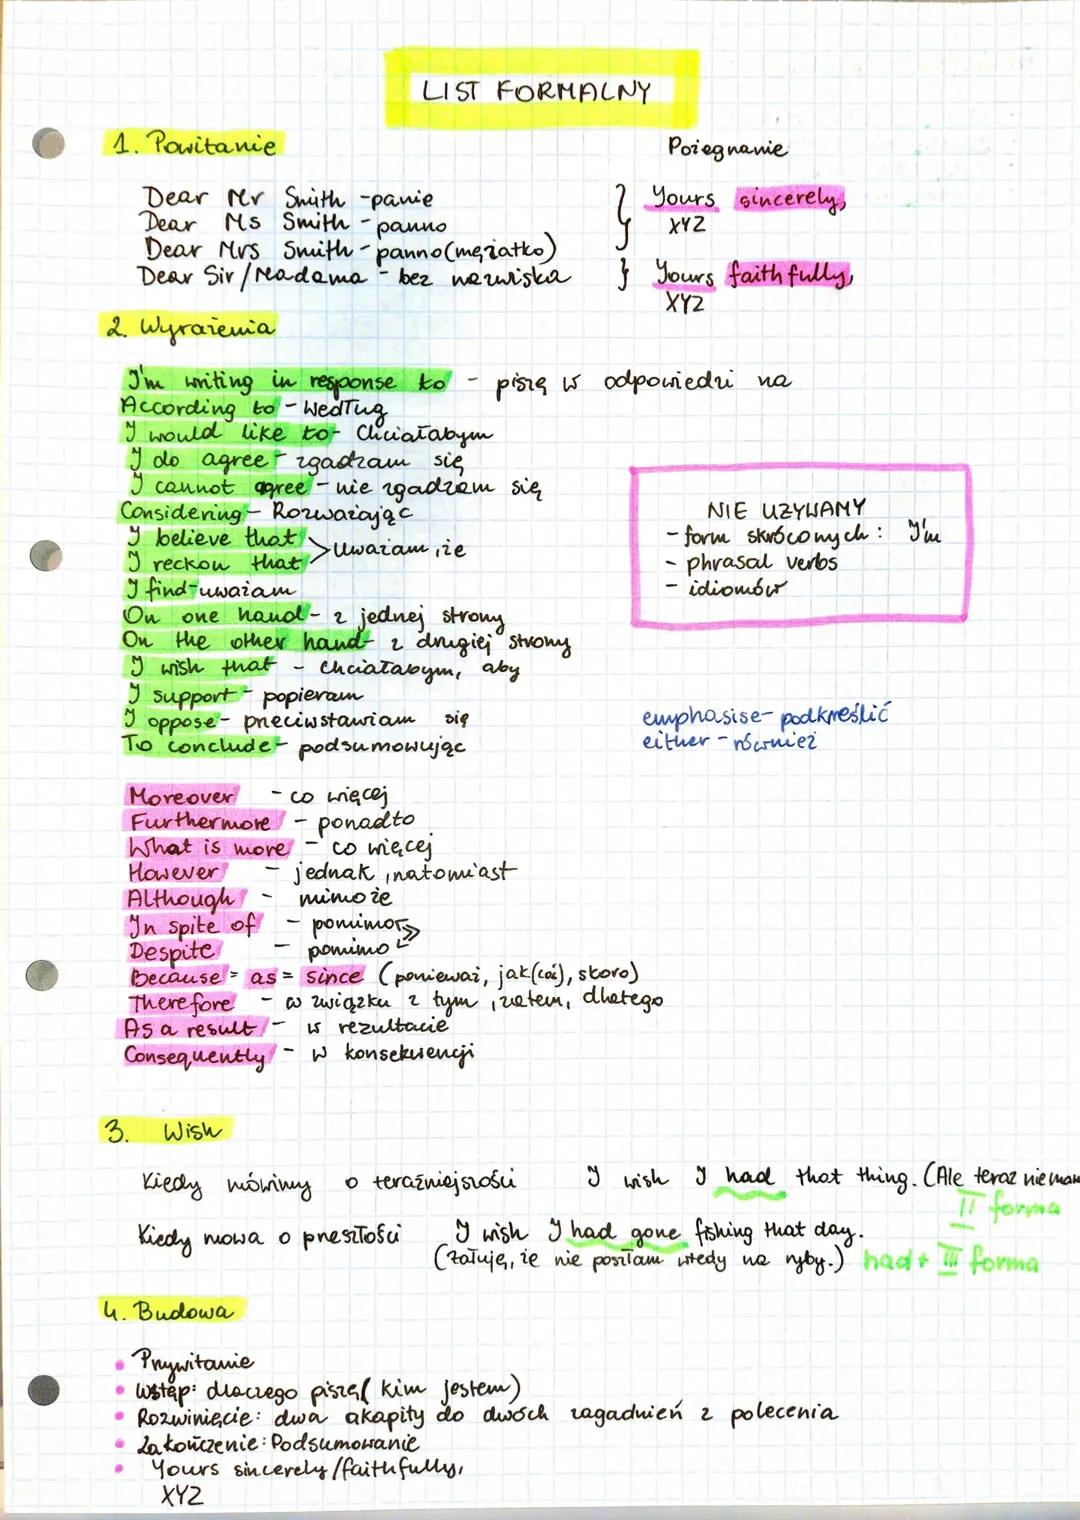 LIST FORMALNY
1. Powitanie
Pożegnanie
Dear Mr Smith - panie
Dear Ms Smith - panno
Dear Mrs Smith - panno (mężatko)
Dear Sir/Madama - bez nazwiska
Yours sincerely,
XYZ
Yours faithfully,
XYZ
2. Wyrażenia
I'm writing in response to - piszę w odpowiedzi na
According to - Według
I would like to - Chciałabym
I do agree - zgadzam się
I cannot agree - nie zgadzam się
Considering - Rozważając
I believe that
I reckon that
> Uważam, że
I find - uważam
On one hand - z jednej strony
On the other hand - z drugiej strony
I wish that - chciałabym, aby
I support - popieram
I oppose - przeciwstawiam się
To conclude - podsumowując
NIE UŻYWAMY
- form skróconych: I'm
- phrasal verbs
- idiomów
emphasise - podkreślić
either - również
Moreover - co więcej
Furthermore - ponadto
What is more - co więcej
However - jednak, natomiast
Although - mimo że
In spite of - pomimo
Despite - pomimo
Because = as = since (ponieważ, jak(coś), skoro)
Therefore - w związku z tym, zatem, dlatego
As a result - w rezultacie
Consequently - w konsekwencji
3. Wish
Kiedy mówimy o teraźniejszości I wish I had that thing. (Ale teraz nie mam
II forma
Kiedy mowa o przeszłości I wish I had gone fishing that day.
(Żałuję, że nie poszłam wtedy na ryby.) had + III forma
4. Budowa
• Przywitanie
• Wstęp: dlaczego piszę (kim jestem)
• Rozwinięcie: dwa akapity do dwóch zagadnień z polecenia
• Zakończenie: Podsumowanie
• Yours sincerely/faithfully,
XYZ